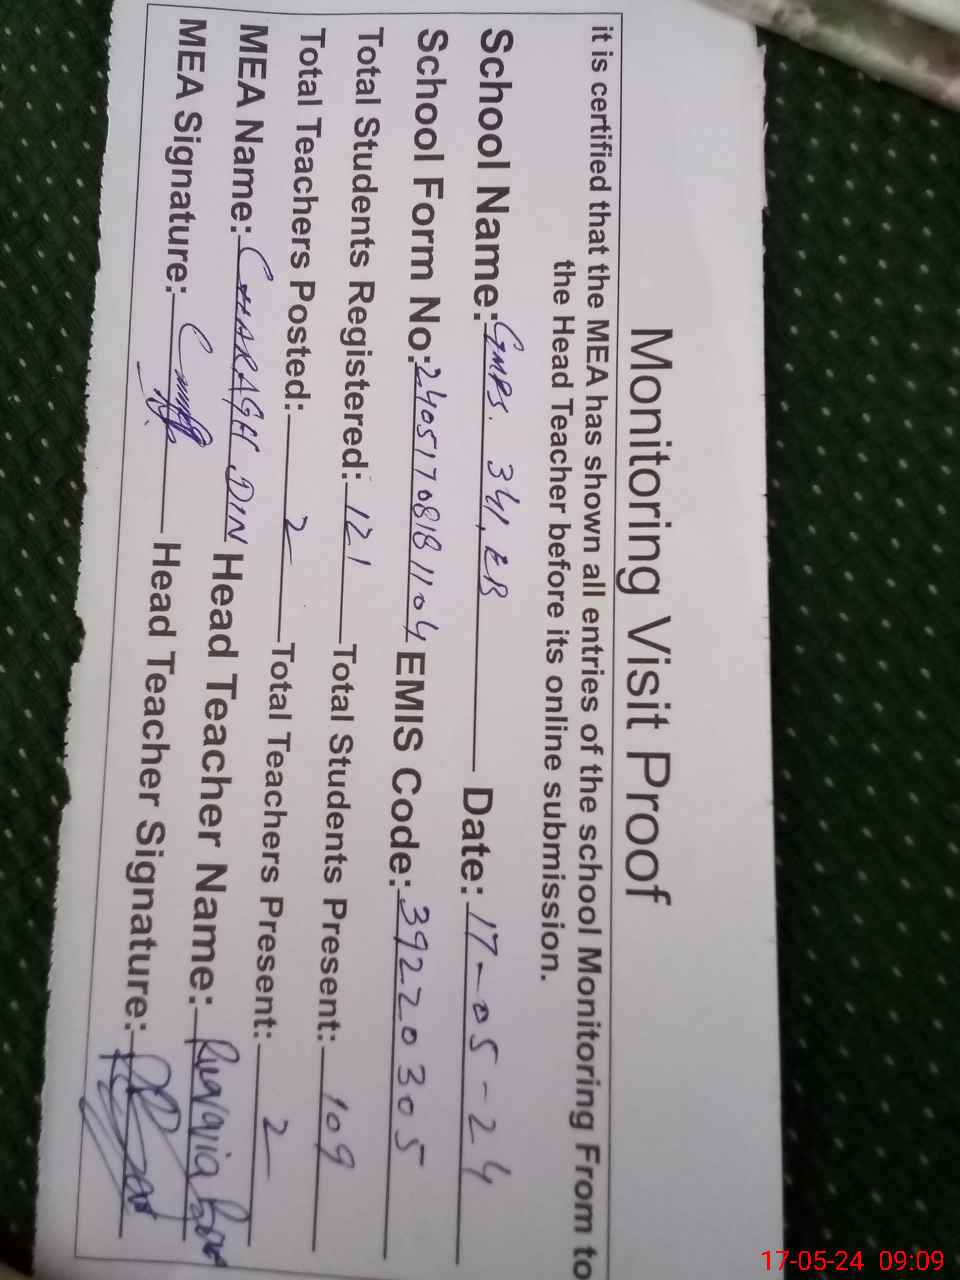 Monitoring Visit Proof
it is certified that the MEA has shown all entries of the school Monitoring From to
the Head Teacher before its online submission.
School Name: GMPS. 341, EB Date: 17-05-24
School Form No: 2405170818 1104 EMIS Code: 39220305
Total Students Registered: 121 Total Students Present: 109
Total Teachers Posted: 2 Total Teachers Present: 2
MEA Name: CHARAGH DIN Head Teacher Name: Ruqqia
MEA Signature: Head Teacher Signature:
17-05-24 09:09